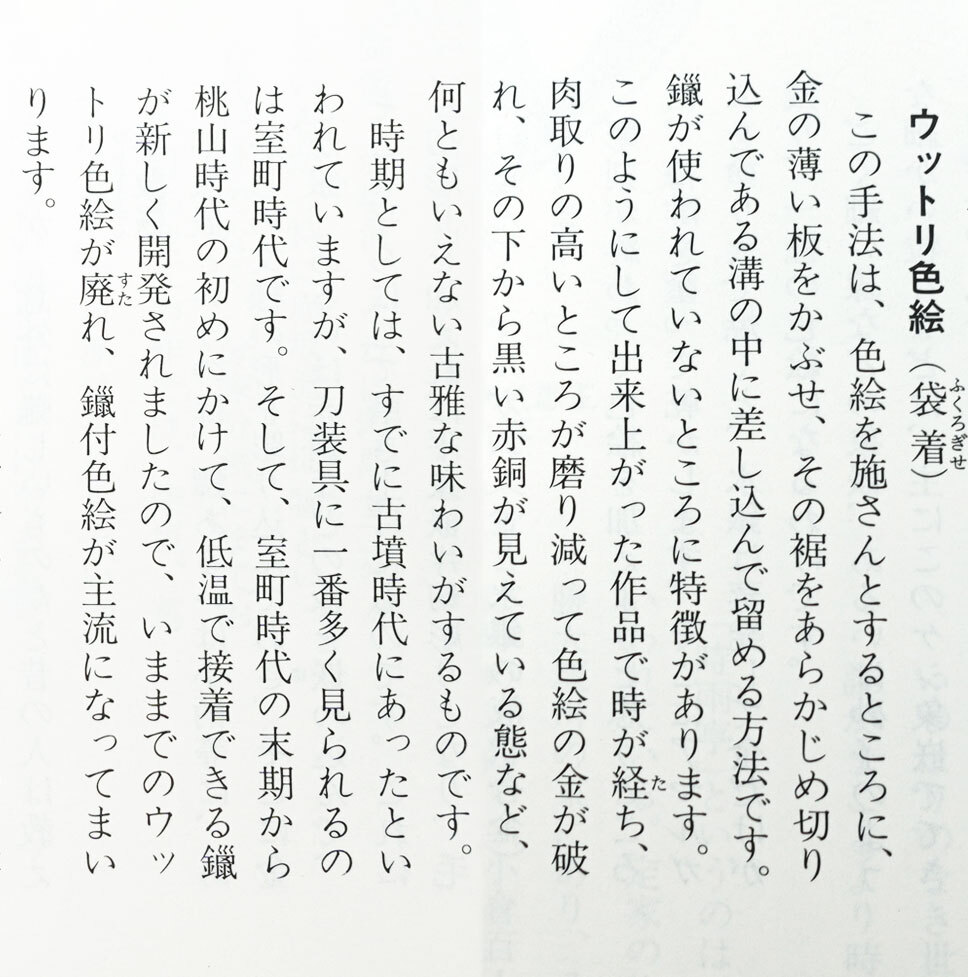 ウットリ色絵（袋着）
ふくろぎせ
この手法は、色絵を施さんとするところに、
金の薄い板をかぶせ、その裾をあらかじめ切り
込んである溝の中に差し込んで留める方法です。
鑞が使われていないところに特徴があります。
このようにして出来上がった作品で時が経ち、
た
肉取りの高いところが磨り減って色絵の金が破
れ、その下から黒い赤銅が見えている態など、
何ともいえない古雅な味わいがするものです。
時期としては、すでに古墳時代にあったとい
われていますが、刀装具に一番多く見られるの
は室町時代です。そして、室町時代の末期から
桃山時代の初めにかけて、低温で接着できる鑞
が新しく開発されましたので、いままでのウッ
トリ色絵が廃れ、鑞付色絵が主流になってまい
すた
ります。